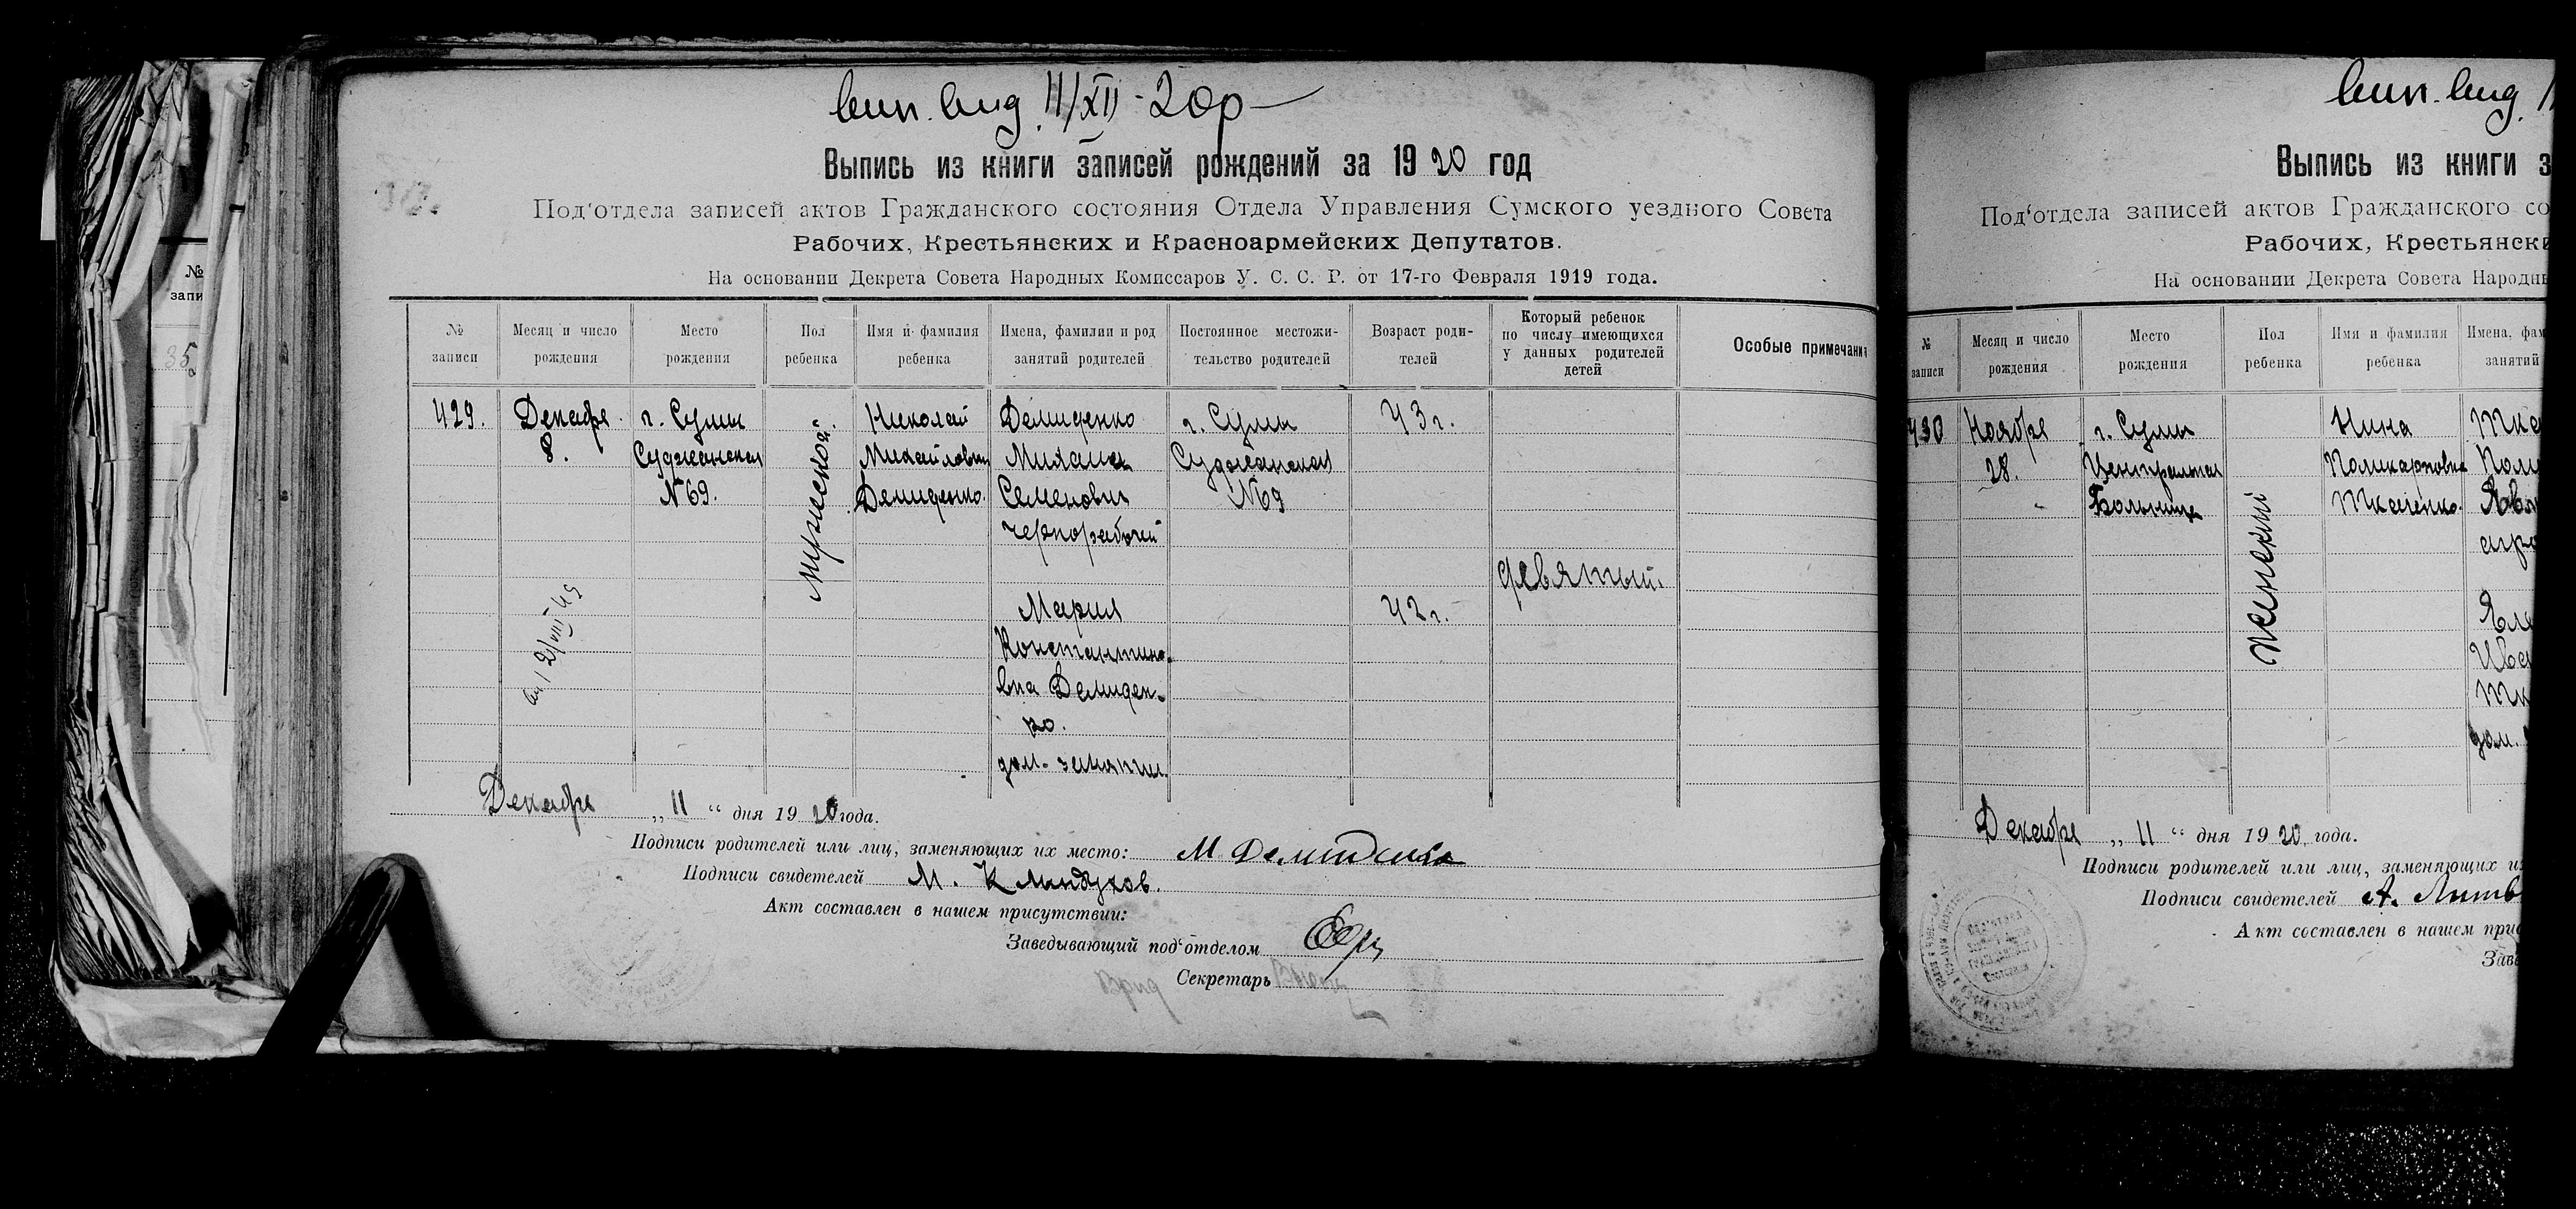 вип. вид. 11/XII-20р
Выпись из книги записей рождений за 1920 год
Под‘отдела записей актов Гражданского состояния Отдела Управления Сумского уездного Совета
Рабочих, Крестьянских и Красноармейских Депутатов.
На основании Декрета Совета Народных Комиссаров У. С. С. Р. от 17-го Февраля 1919 года.
№ записи
Месяц и число рождения
Место рождения
Пол ребенка
Имя и фамилия ребенка
Имена, фамилии и род занятий родителей
Постоянное местожительство родителей
Возраст родителей
Который ребенок по числу имеющихся у данных родителей детей
Особые примечания
429.
Декабря
8.
г. Сумы
Суджанская
№ 69.
мужеской
Николай
Михайлович
Демиденко.
Демиденко
Михаил
Семенович
чернорабочий
Мария
Константино-
вна Демиден-
ко.
дом. занятия.
г. Сумы
Суджанская
№ 69
43 г.
42 г.
девятый.
2/VIII 45
Декабря „ 11 “ дня 1920 года.
Подписи родителей или лиц, заменяющих их место: М Демиденко
Подписи свидетелей М.
Акт составлен в нашем присутствии:
Заведывающий под‘отделом
Врид Секретарь
№
запи
35
вип. вид. 1
Выпись из книги з
Под‘отдела записей актов Гражданского со
Рабочих, Крестьянски
На основании Декрета Совета Народн
№ записи
Месяц и число рождения
Место рождения
Пол ребенка
Имя и фамилия ребенка
Имена, фам
занятий
430
Ноября
28.
г. Сумы
Центральная
Больница
женский
Нина
Поликарповна
Ткаченко.
Тка
Поли
дом.
Декабря „ 11 “ дня 1920 года.
Подписи родителей или лиц, заменяющих их
Подписи свидетелей А. Литв
Акт составлен в нашем при
Заве